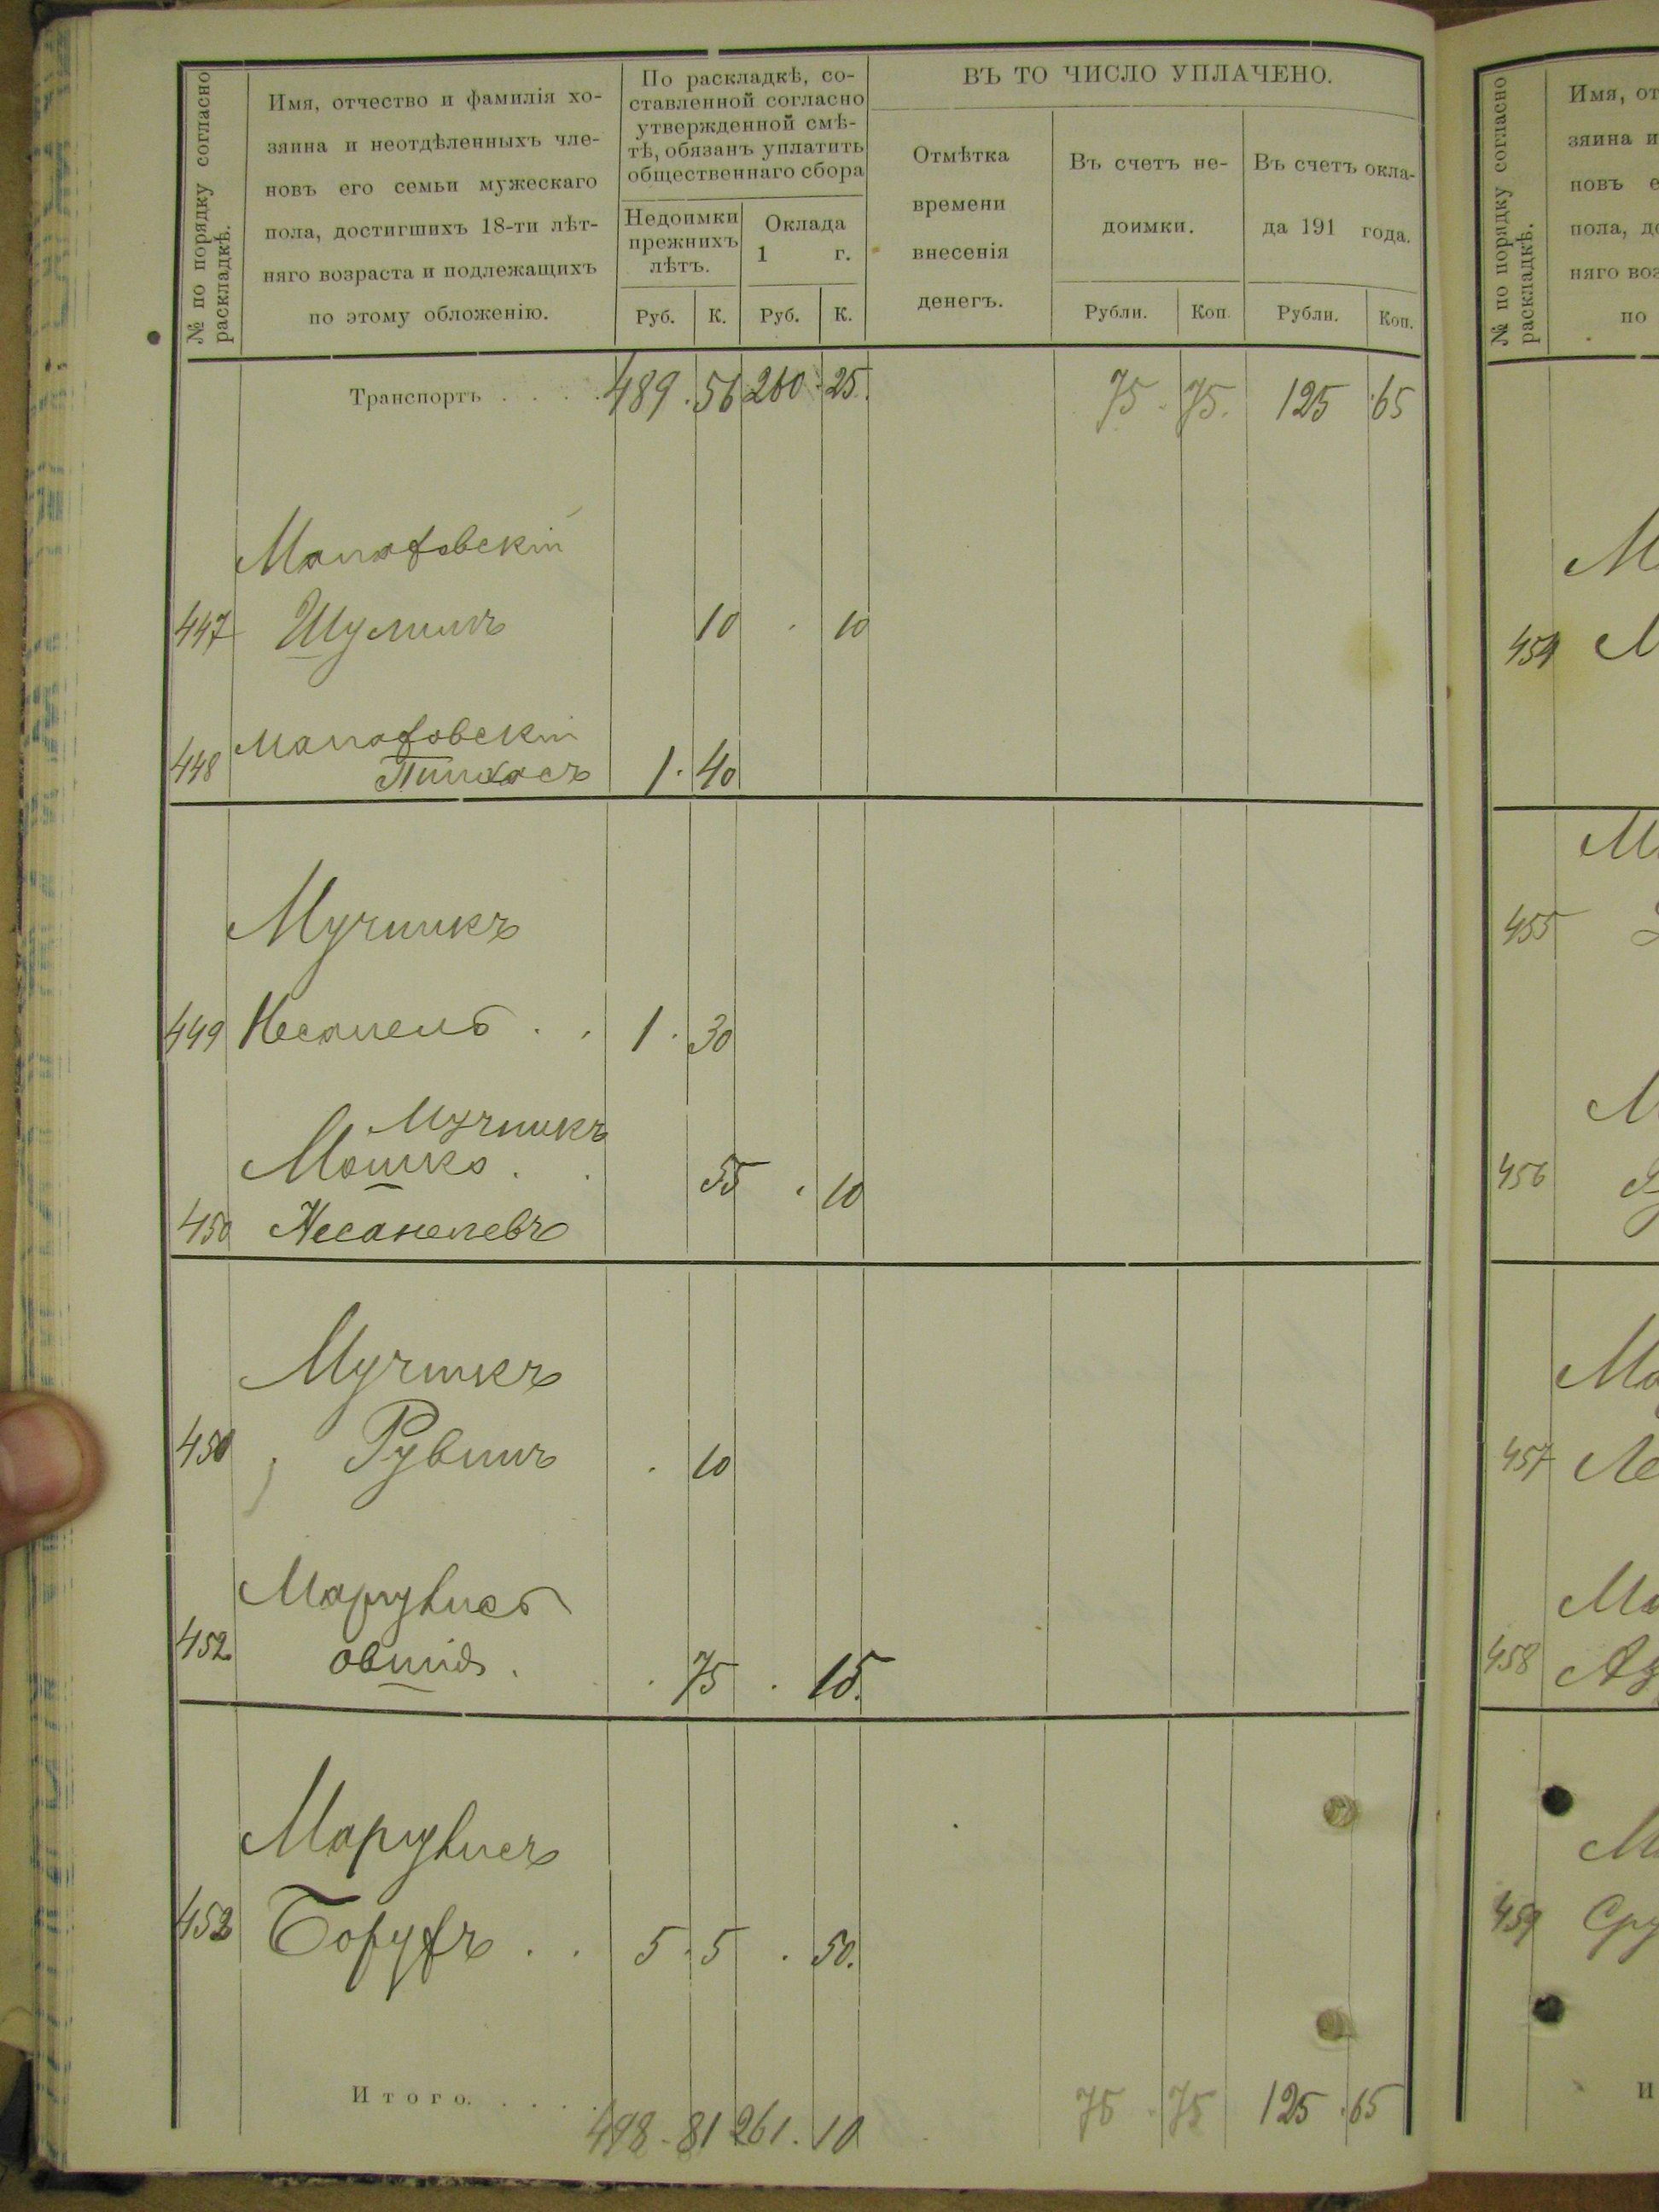 № по порядку согласно
раскладкѣ.
Имя, отчество и фамилія хо-
зяина и неотдѣленныхъ чле-
новъ его семьи мужескаго
пола, достигшихъ 18-ти лѣт-
няго возраста и подлежащихъ
по этому обложенію.
По раскладкѣ, со-
ставленной согласно
утвержденной смѣ-
тѣ, обязанъ уплатить
общественнаго сбора
Недоимки
прежнихъ
лѣтъ.
Оклада
1 г.
Руб. К. Руб. К.
ВЪ ТО ЧИСЛО УПЛАЧЕНО.
Отмѣтка
времени
внесенія
денегъ.
Въ счетъ не-
доимки.
Въ счетъ окла-
да 191 года.
Рубли. Коп. Рубли. Коп.
Транспортъ . . . . 489 . 56 260 . 25. 75 . 75. 125 . 65
447 10 . 10
448 Пинхасъ 1 . 40
Мучникъ
449 Несанель . . 1 . 30
Мучникъ
Мошко . . 55 . 10
450 Несанелевъ
Мучникъ
450 Рувинъ . 10
452 Овшія . . 75 . 15.
Маргулисъ
Борухъ . . 5 . 5 . 50.
Итого. . . . . 498 . 81 261 . 10 75 . 75 125 . 65
№ по порядку согласно
раскладкѣ.
Имя, от
зяина и
новъ е
пола, до
няго воз
по
454 М
455
456
457 Ле
458
459 Сру
И